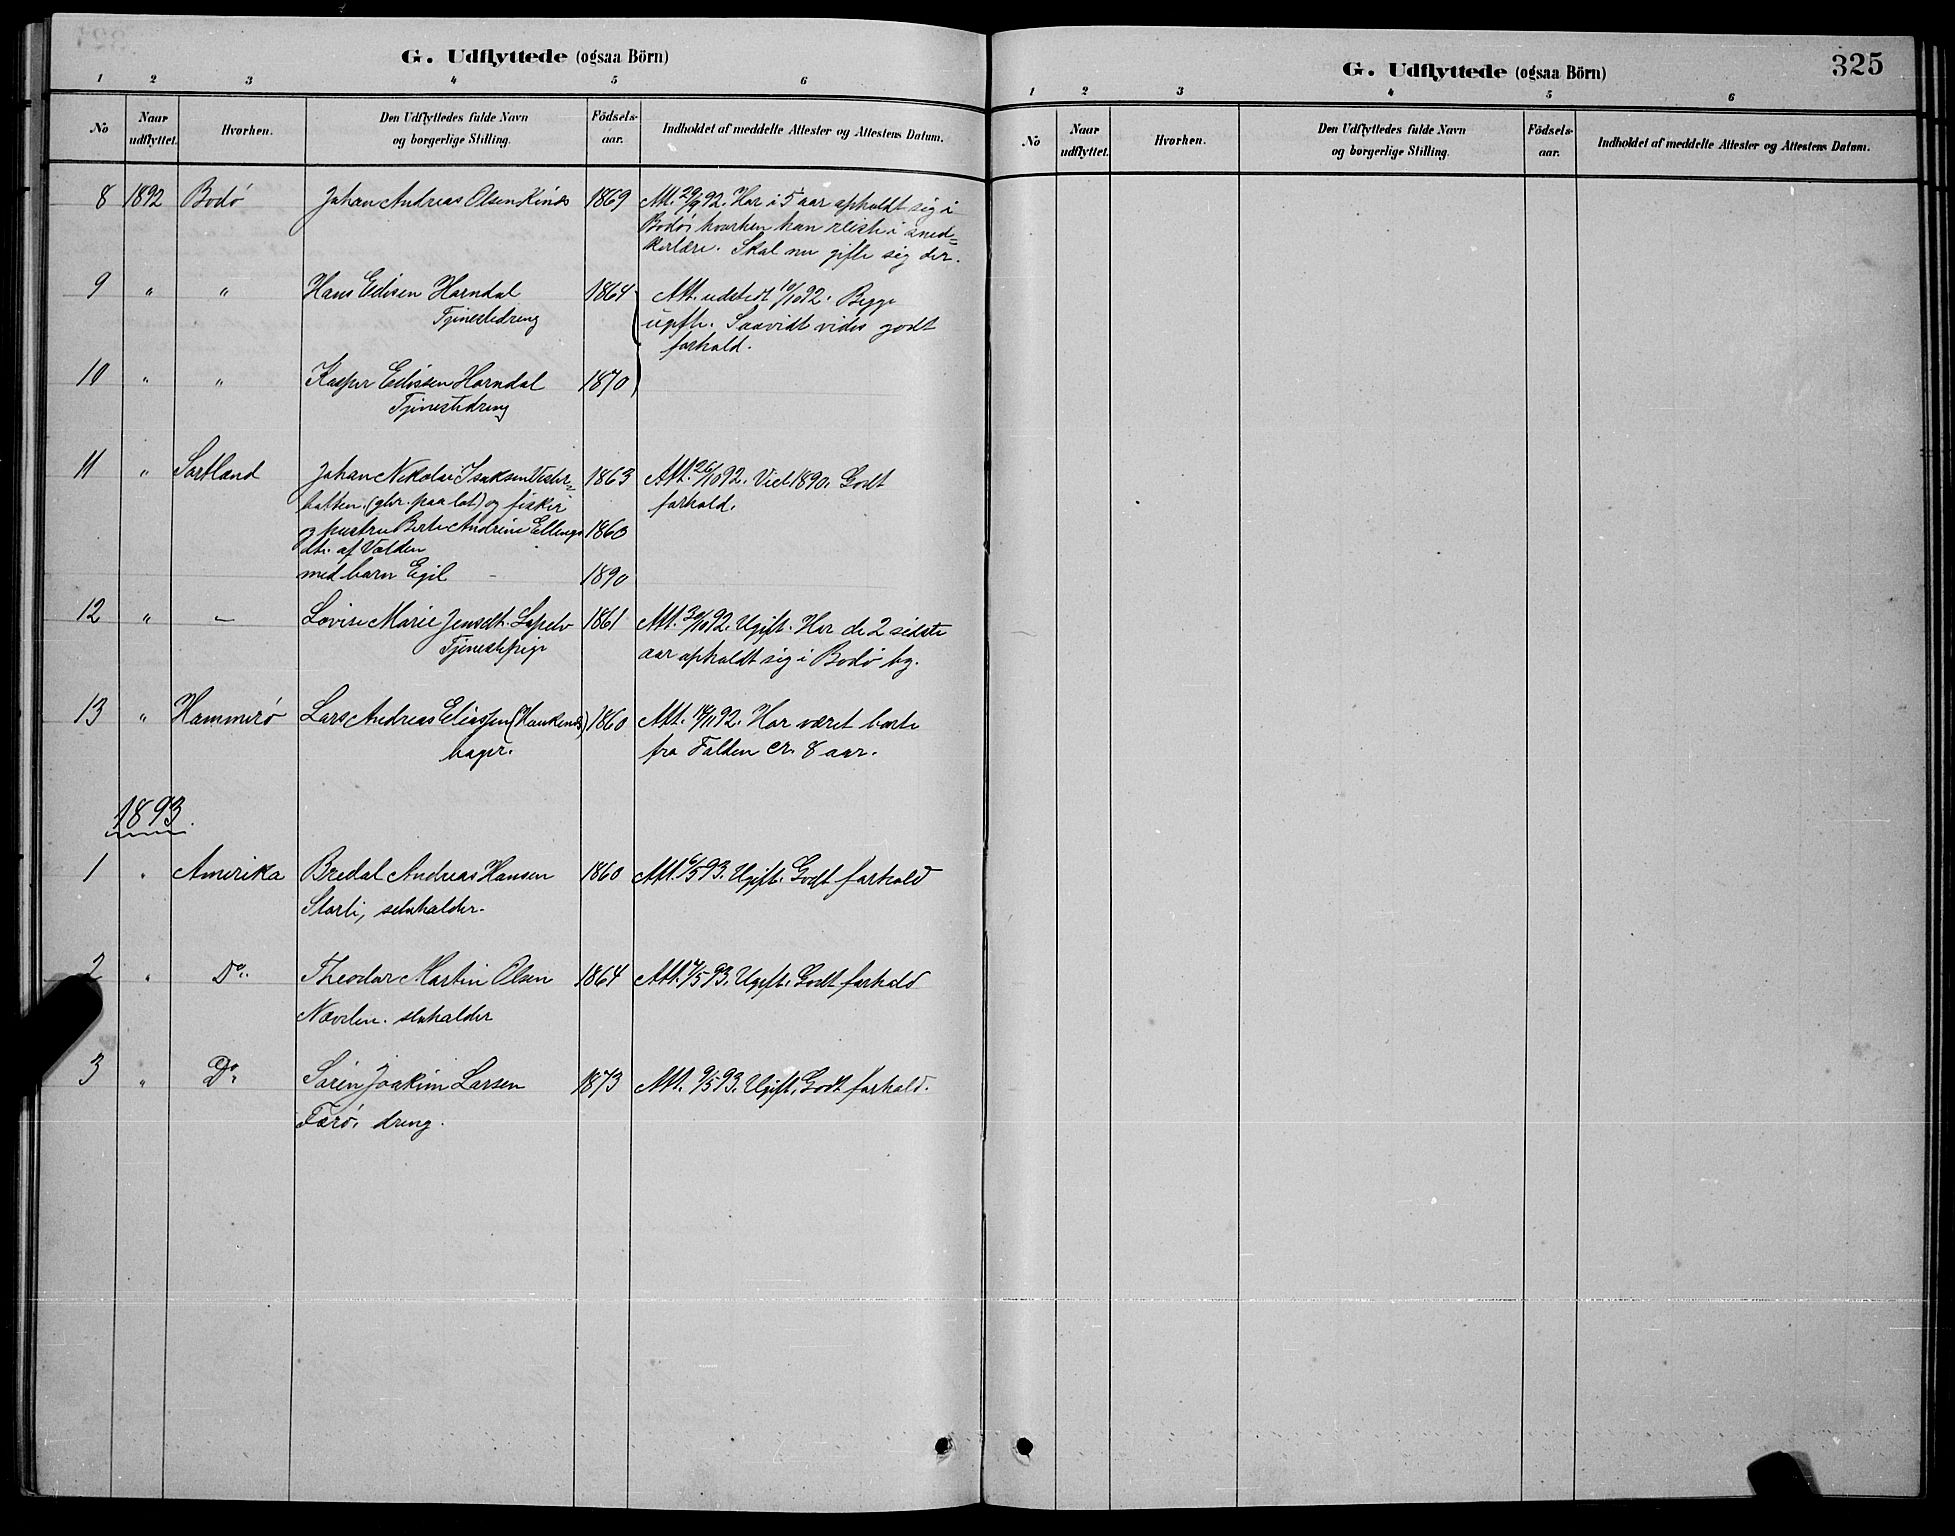 G. Udflyttede (ogsaa Börn)
1 2 3 4 5 6
No Naar udflyttet. Hvorhen. Den Udflyttedes fulde Navn og borgerlige Stilling. Födsels-aar. Indholdet af meddelte Attester og Attestens Datum.
8 1892 Bodö Johan Andreas Olsen 1869 Att. 29/9 92. Har i 5 aar opholdt sig i
Bodö, hvorhen han reiste i sned=
kerlære. Skal nu gifte sig der.
9 " " Hans Edisen Horndal 1864 Att. udstedt 10/10 92. Begge
Tjenestedreng ugifte. Saavidt vides godt
forhold.
10 " " Kasper Edissen Horndal 1870
Tjenestedreng
11 " Sortland Johan Nikolai Isaksen Vester= 1863 Att. 26/10 92. Viet 1890. Godt
botten. (gbr. paa lot) og fisker forhold.
og hustru Berte Andrine Ellings 1860
dtr. af Valden
med barn Egil - 1890
12 " - Lovise Marie Jensdt. 1861 Att. 30/10 92. Ugift. Har de 2 sidste
Tjenestepige aar opholdt sig i Bodö by.
13 " Hammerö Lars Andreas Eliassen (Haukenes) 1860 Att. 14/11 92. Har været borte
bager. fra Folden cr. 8 aar.
1893.
1 " Amerika Bredal Andreas Hansen 1860 Att. 6/5 93. Ugift. Godt forhold
Storli, selvholder.
2 " Do. Theodor Martin Olsen 1864 Att. 7/5 93. Ugift. Godt forhold
Nævelen. selvholder
3 " Do. Sören Joakim Larsen 1873 Att. 9/5 93. Ugift. Godt forhold.
Færö, dreng.
325
G. Udflyttede (ogsaa Börn)
1 2 3 4 5 6
No Naar udflyttet. Hvorhen. Den Udflyttedes fulde Navn og borgerlige Stilling. Födsels-aar. Indholdet af meddelte Attester og Attestens Datum.